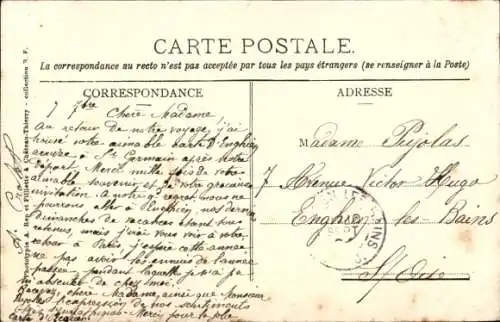 CARTE POSTALE.
La correspondance au recto n'est pas acceptée par tous les pays étrangers (se renseigner à la Poste)
CORRESPONDANCE
ADRESSE
7 7bre
Chère Madame,
Au retour de notre voyage, j'ai
trouvé votre aimable carte d'Enghien
arrivée à St Germain après notre
départ. Merci mille fois de votre
aimable souvenir et de votre gracieuse
invitation à notre regret, nous ne
pourrons aller à Enghien, nos derniers
dimanches de vacances étant tous
retenus, mais j'irai vous voir à votre
retour à Paris, j'espère cette année
ne pas oublier les heures de l'année
passée pendant laquelle je n'ai pu
m'absenter de chez moi.
Recevez, chère Madame, ainsi que Monsieur
Pujolas l'expression de nos sentiments
Merci pour la jolie
carte d'
Madame Pujolas
7 Avenue Victor Hugo
Enghien les-Bains
S et Oise
Phototypie A. Rep. et Filliette à Château-Thierry - collection N. F.